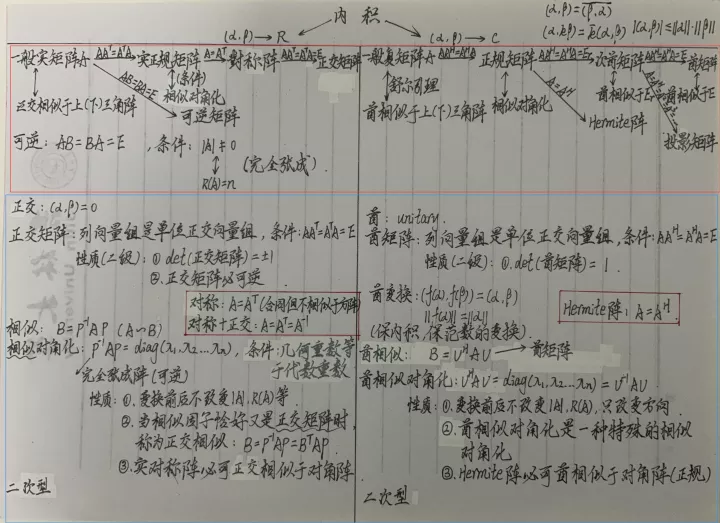 内积
(α,β)→R
(α,β)→C
(α,β)=(β,α)
(α,kβ)=k(α,β) |(α,β)|≤||α||·||β||
一般实矩阵A AAᵀ=AᵀA 实正规矩阵 A=Aᵀ 对称阵 AAᵀ=AᵀA=E 正交矩阵
(条件)
相似对角化
AB=BA=E
正交相似于上(下)三角阵
可逆矩阵
可逆：AB=BA=E ，条件：|A|≠0
(完全张成)
R(A)=n
一般复矩阵A AAᴴ=AᴴA 正规矩阵 AAᴴ=AᴴA=E 次酉矩阵 酉矩阵
舒尔引理
酉相似于上(下)三角阵 相似对角化
A=Aᴴ
酉相似于E 酉相似于E
Hermite阵
投影矩阵
正交：(α,β)=0
正交矩阵：列向量组是单位正交向量组，条件：AAᵀ=AᵀA=E
性质(二级)：①det(正交矩阵)=±1
②.正交矩阵必可逆
对称：A=Aᵀ(合同但不相似于方阵)
对称+正交：A=Aᵀ=A⁻¹
相似：B=P⁻¹AP (A∽B)
相似对角化：P⁻¹AP=diag(λ₁,λ₂...λₙ)，条件：几何重数等于代数重数
完全张成阵(可逆)
性质：①.变换前后不改变|A|,R(A)等
②.当相似因子恰好又是正交矩阵时，
称为正交相似：B=P⁻¹AP=BᵀAP
③.实对称阵，必可正交相似于对角阵
二次型
酉：unitary.
酉矩阵：列向量组是单位正交向量组，条件：AAᴴ=AᴴA=E
性质(二级)：①.det(酉矩阵)=1.
酉变换：(f(α),f(β))=(α,β)
||f(α)||=||α||
(保内积，保范数的变换)
Hermite阵：A=Aᴴ.
酉相似：B=UᴴAU→酉矩阵
酉相似对角化：UᴴAU=diag(λ₁,λ₂...λₙ)=UᴴAU
性质：①.变换前后不改变|A|,R(A),只改变方向.
②.酉相似对角化是一种特殊的相似
对角化
③.Hermite阵必可酉相似于对角阵(正规)
二次型